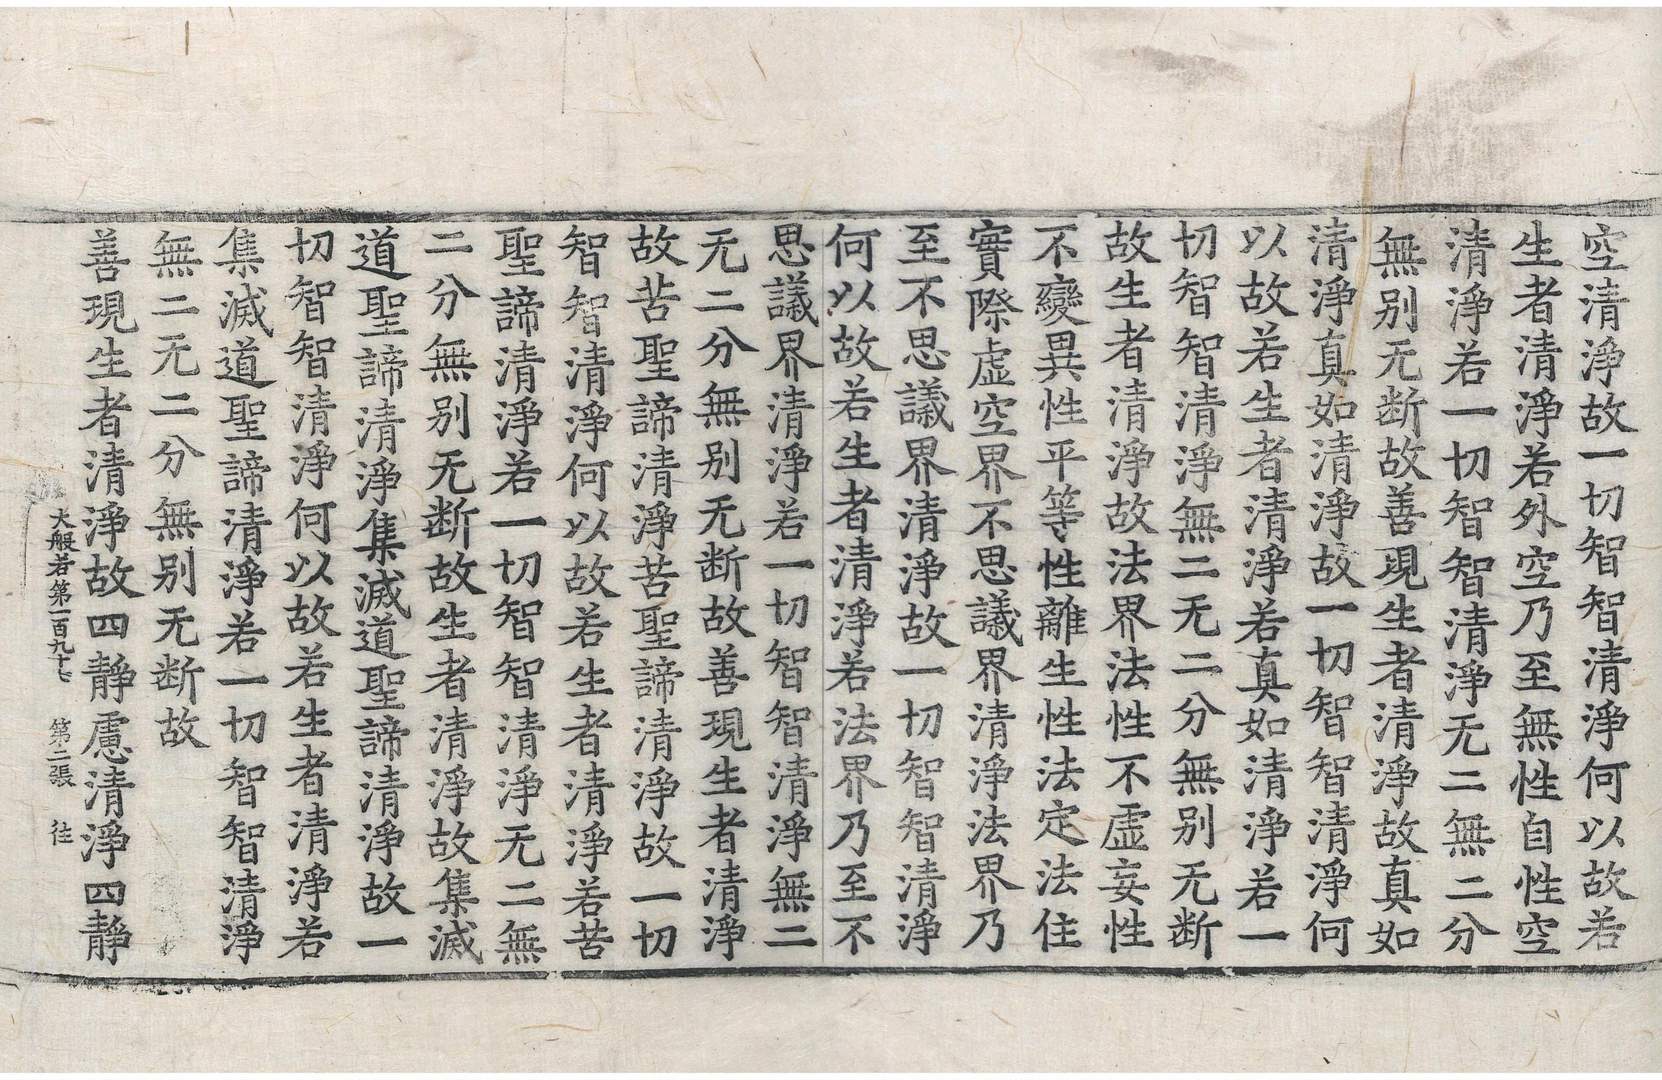 空清淨故一切智智清淨何以故若
生者清淨若外空乃至無性自性空
清淨若一切智智清淨无二無二分
無别无断故善現生者清淨故真如
清淨真如清淨故一切智智清淨何
以故若生者清淨若真如清淨若一
切智智清淨無二无二分無别无断
故生者清淨故法界法性不虚妄性
不變異性平等性離生性法定法住
實際虚空界不思議界清淨法界乃
至不思議界清淨故一切智智清淨
何以故若生者清淨若法界乃至不
思議界清淨若一切智智清淨無二
无二分無别无断故善現生者清淨
故苦聖諦清淨苦聖諦清淨故一切
智智清淨何以故若生者清淨若苦
聖諦清淨若一切智智清淨无二無
二分無别无断故生者清淨故集滅
道聖諦清淨集滅道聖諦清淨故一
切智智清淨何以故若生者清淨若
集滅道聖諦清淨若一切智智清淨
無二无二分無别无断故
善現生者清淨故四靜慮清淨四靜
大般若第一百九十七 第二張 往